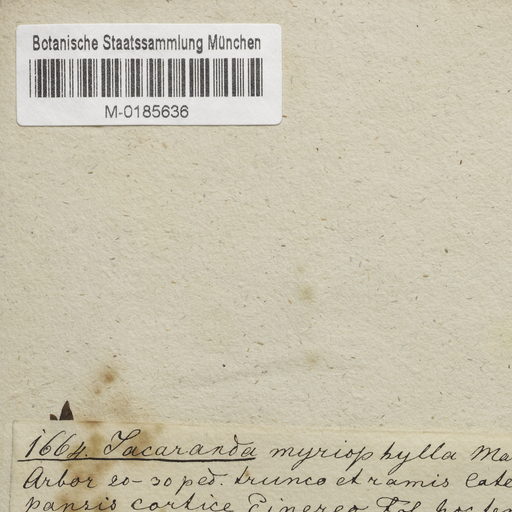 Botanische Staatssammlung München
M-0185636
1664. Jacaranda myriophylla Ma
Arbor 20-30 ped. trunco et ramis late
pansis cortice Cinereo Fol